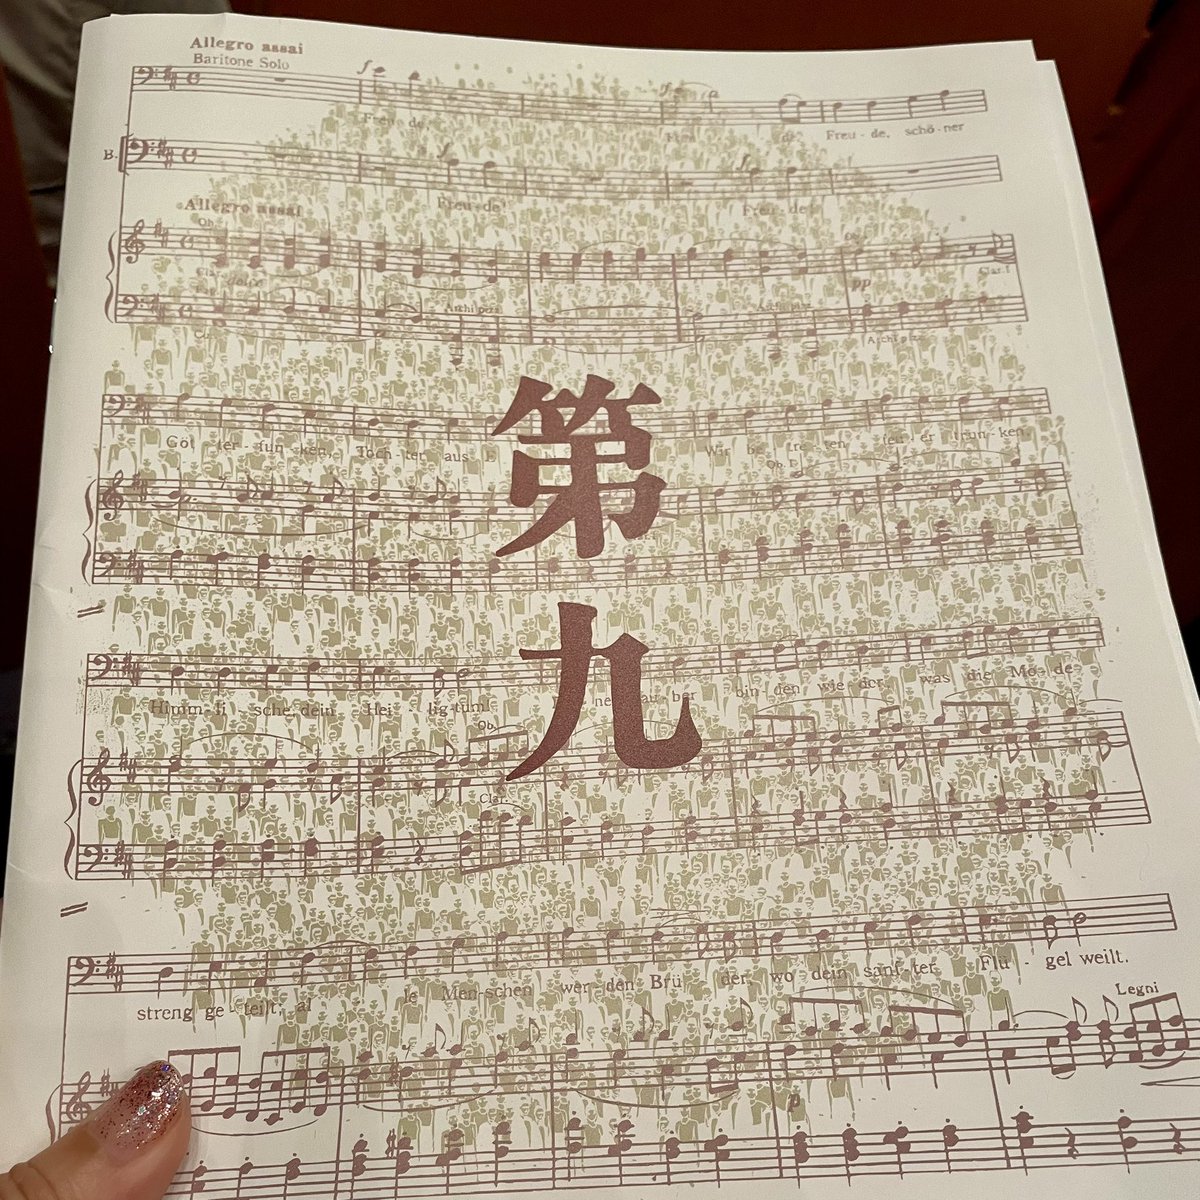 Allegro assai
Baritone Solo
f
Freu - de, schö - ner
B.
Freu - de! Freu - de!
Allegro assai
Ob.
pp
Clar. I
Archi pizz.
Göt - ter - fun - ken, Toch - ter aus Wir be - tre - ten feu - er - trun - ken,
第九
Himm - li - sche, dein Hei - lig - tum! bin - den wie - der, was die Mo - de
Ob.
Clar.
streng ge - teilt; al - le Men - schen wer - den Brü - der, wo dein sanf - ter Flü - gel weilt.
Legni
p